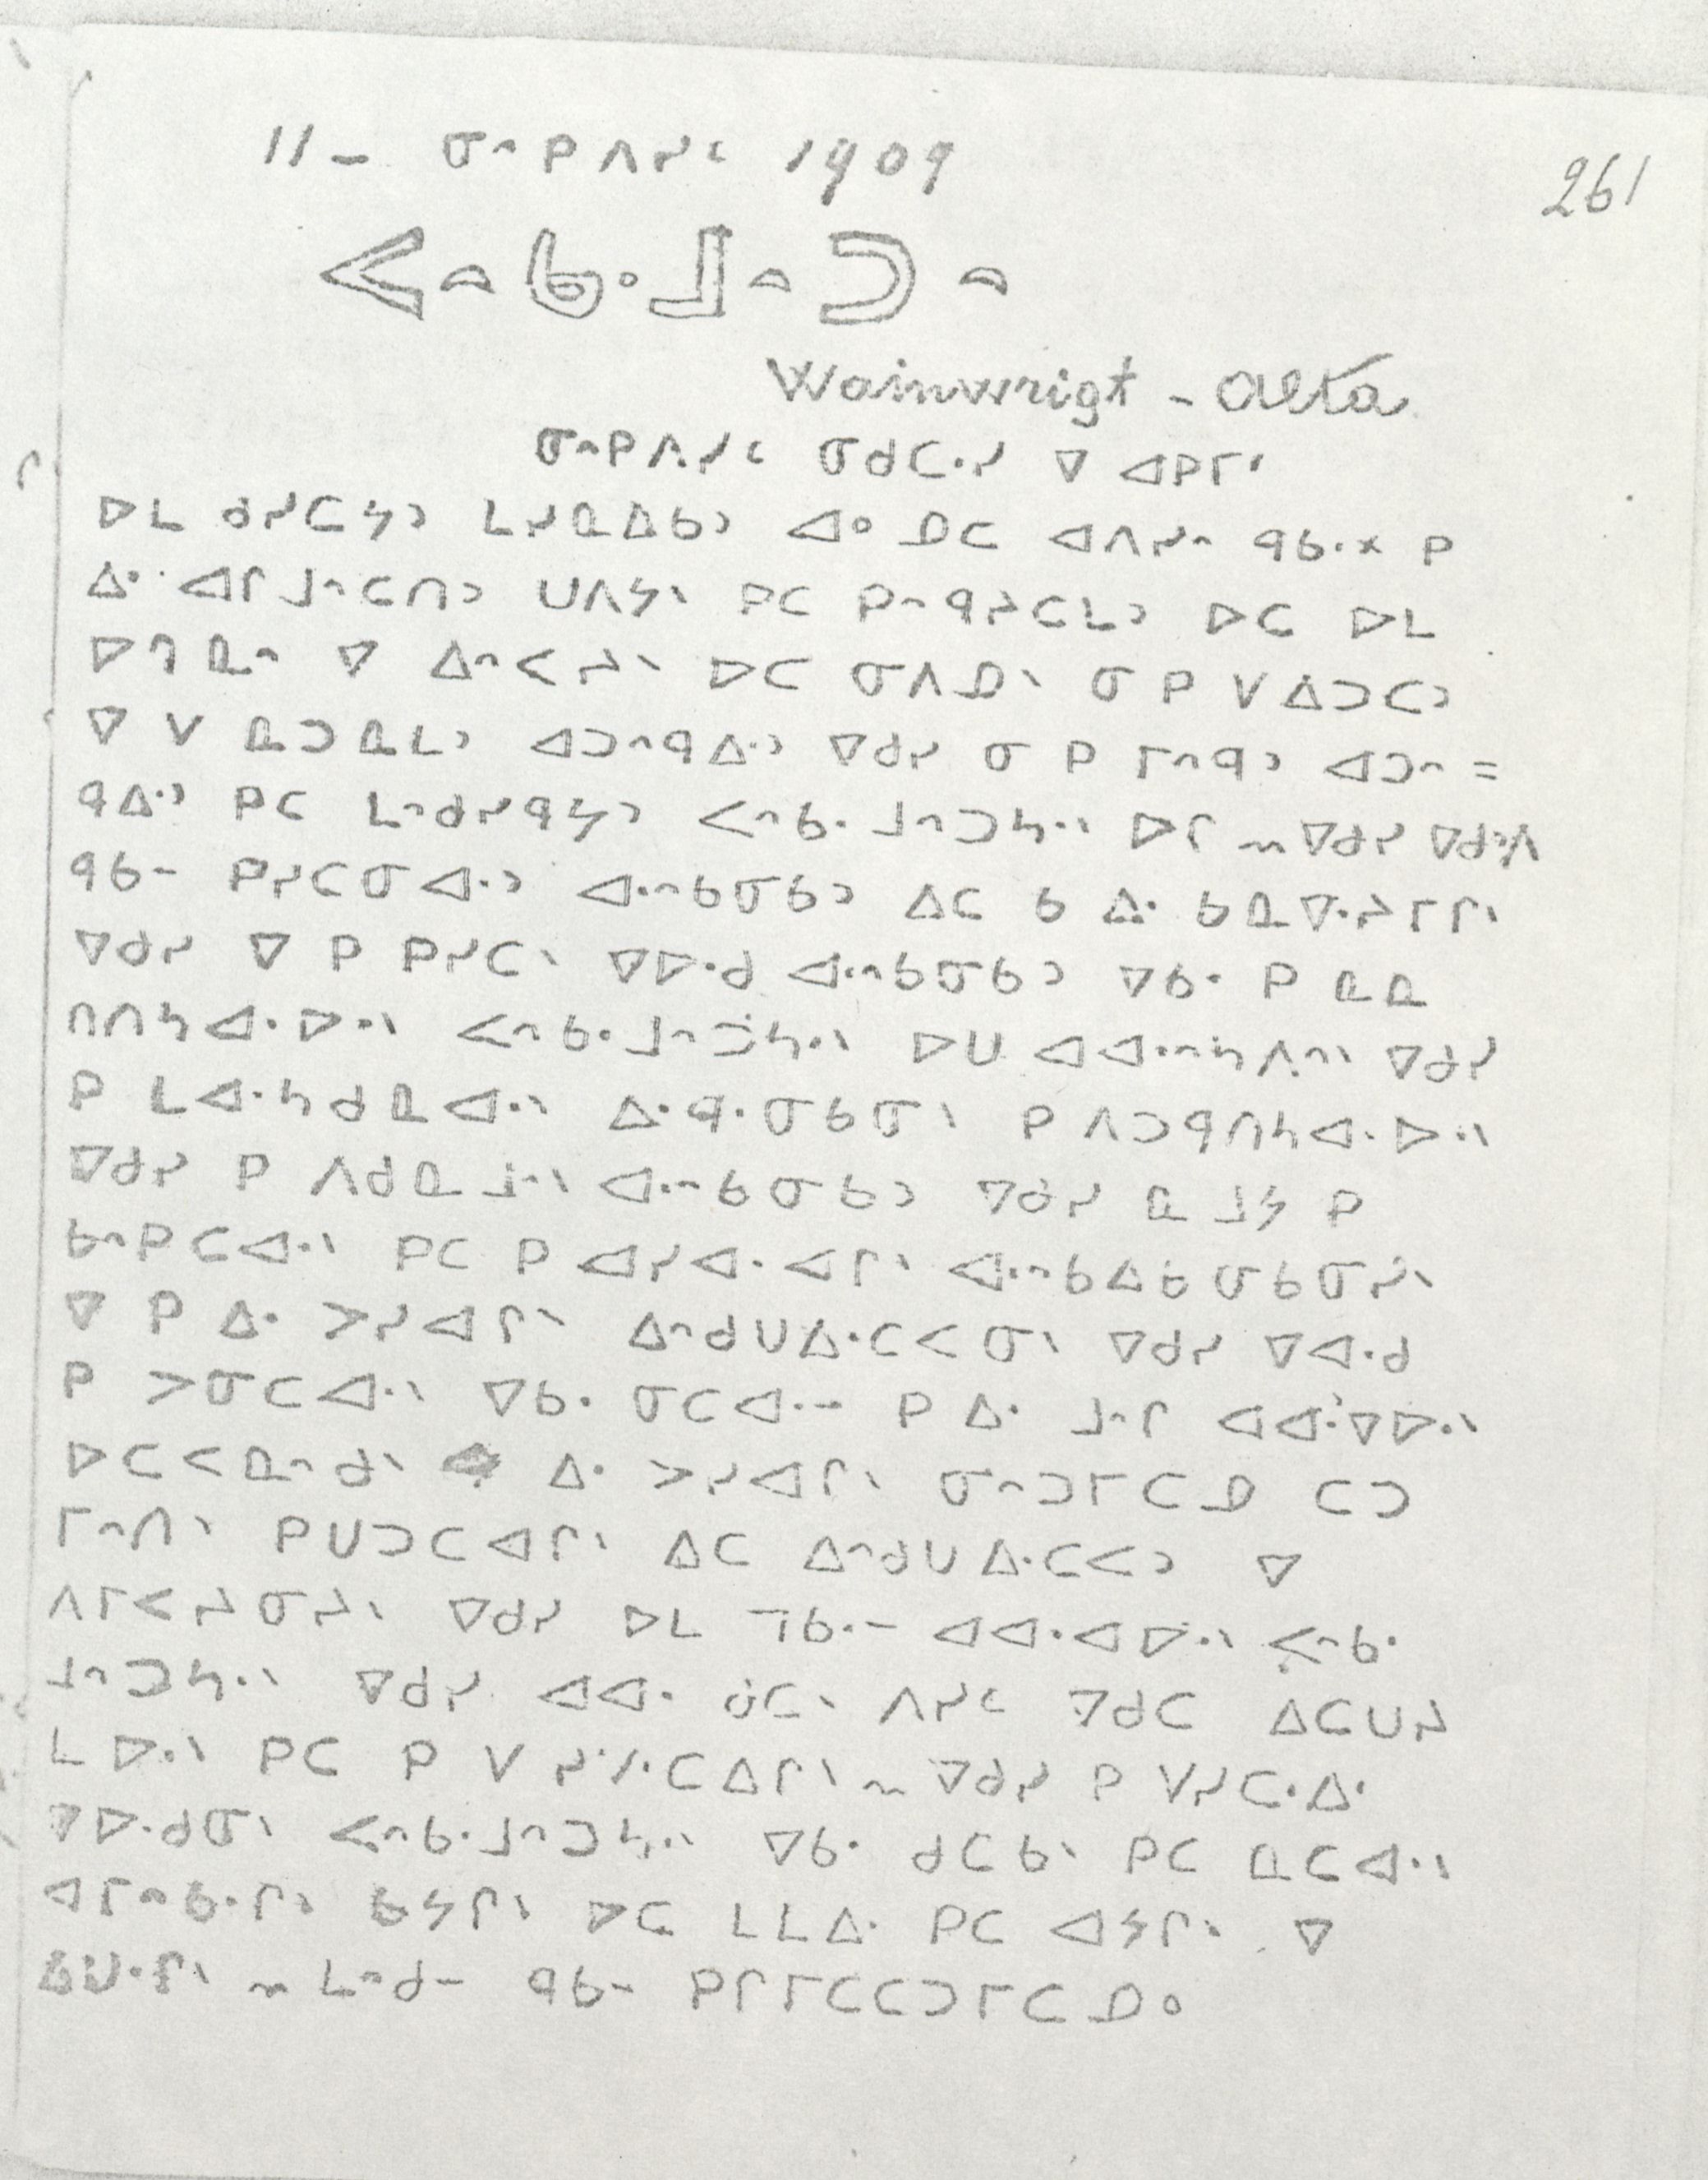 11 - ᓂᐢᑭᐱᓯᒼ 1909
261
ᐸᐢᑲᐧᒧᐢᑐᐢ
Wainwrigt - Alta
ᓂᐢᑭᐱᓯᒼ ᓂᑯᑕᐧᓯ ᐁ ᐊᑭᒥᐟ
ᐅᒪ ᑯᓯᑕᔭᐣ ᒪᓯᓇᐃᑲᐣ ᐊᐤ ᓄᑕ ᐊᐱᓯᐢ ᑫᑲᐧ᙮ ᑭ
ᐃᐧ ᐊᒋᒧᐢᑕᑎᐣ ᑌᐱᔭᐠ ᑭᑕ ᑭᐢᑫᔨᑕᒪᐣ ᐅᑕ ᐅᒪ
ᐅᒉᓇᐢ ᐁ ᐃᐢᐸᔨᐠ ᐅᑕ ᓂᐱᓄᐠ ᓂ ᑭ ᐯᐃᑐᑕᐣ
ᐁ ᐯ ᓇᑐᓇᒪᐣ ᐊᑐᐢᑫᐃᐧᐣ ᐁᑯᓯ ᓂ ᑭ ᒥᐢᑫᐣ ᐊᑐᐢ =
ᑫᐃᐧᐣ ᑭᑕ ᒪᐢᑯᓯᑫᔭᐣ ᐸᐢᑲᐧᒧᐢᑐᓴᐧᐠ ᐅᒋ ~ ᐁᑯᓯ ᐁᑯᐱ
ᑫᑲ- ᑭᓯᑕᓂᐊᐧᐣ ᐊᐧᐢᑲᓂᑲᐣ ᐃᑕ ᑲ ᐃᐧ ᑲᓇᐁᐧᔨᒥᒋᐠ
ᐁᑯᓯ ᐁ ᑭ ᑭᓯᑕᐠ ᐁᐅᐧᑯ ᐊᐧᐢᑲᓂᑲᐣ ᐁᑲᐧ ᑭ ᓇᓇ
ᑎᑎᓴᐊᐧᐅᐧᐠ ᐸᐢᑲᐧᒧᐢᑐᓴᐧᐠ ᐅᑌ ᐊᐊᐧᐢᓴᐱᐢᐠ ᐁᑯᓯ
ᑭ ᒪᐊᐧᓴᑯᓇᐊᐧᐠ ᐃᐧᑫᐧᓂᑲᓂᐠ ᑭ ᐱᑐᑫᑎᓴᐊᐧᐅᐧᐠ
ᐁᑯᓯ ᑭ ᐱᑯᓇᒧᐠ ᐊᐧᐢᑲᓂᑲᐣ ᐁᑯᓯ ᓇᒧᔭ ᑭ
ᑲᐢᑭᑕᐊᐧᐠ ᑭᑕ ᑭ ᐊᓯᐊᐧᐊᒋᐠ ᐊᐧᐢᑲᐃᑲᓂᑲᓂᓯᐠ
ᐁ ᑭ ᐃᐧ ᐳᓯᐊᒋᐠ ᐃᐢᑯᑌᐃᐧᑕᐸᓂᐠ ᐁᑯᓯ ᐁᐊᐧᑯ
ᑭ ᐳᓂᑕᐊᐧᐠ ᐁᑲᐧ ᓂᑕᐊᐧ- ᑭ ᐃᐧ ᒧᐢᒋ ᐊᐊᐧᐁᐅᐧᐠ
ᐅᑕᐸᓇᐢᑯᐠ ᐃᐧ ᐳᓯᐊᒋᐠ ᓂᐢᑐᒥᑕᓄ ᑕᑐ
ᒥᐢᑎᐠ ᑭᑌᑐᑕᐊᒋᐠ ᐃᑕ ᐃᐢᑯᑌᐃᐧᑕᐸᐣ ᐁ
ᐱᒥᐸᔨᓂᔨᐠ ᐁᑯᓯ ᐅᒪ ᒣᑲᐧ- ᐊᐊᐧᐊᐅᐧᐠ ᐸᐢᑲᐧ
ᒧᐢᑐᓴᐧᐠ ᐁᑯᓯ ᐊᐊᐧ ᑯᑕᐠ ᐱᓯᒼ ᐁᑯᑕ ᐃᑕᑌᔨ
ᒪᐅᐧᐠ ᑭᑕ ᑭ ᐯ ᓯᐢᐧᑕᐃᒋᐠ ~ ᐁᑯᓯ ᑭ ᐯᓯᑕᐧᐃᐧ
ᐁᐅᐧᑯᓂᐠ ᐸᐢᑲᐧᒧᐢᑐᓴᐧᐠ ᐁᑲᐧ ᑯᑕᑲᐠ ᑭᑕ ᓇᑕᐊᐧᐠ
ᐊᒥᐢᑲᐧᒋᐣ ᑲᔭᒋᐠ ᐅᑕ ᒪᒪᐃᐧ ᑭᑕ ᐊᔭᒋᐠ ᐁ
ᐃᑌᐧᒋᐠ ~ ᒪᐢᑯ- ᑫᑲ- ᑭᒋᒥᑕᑕᑐᒥᑕᓄᐤ